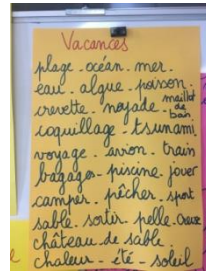 Vacances
plage - océan - mer -
eau - algue - poisson -
crevette - noyade - maillot de bain
coquillage - tsunami
voyage - avion - train
bagages - piscine - jouer
camper - pêcher - sport
sable - sortir - pelle -
château de sable
chaleur - été - soleil